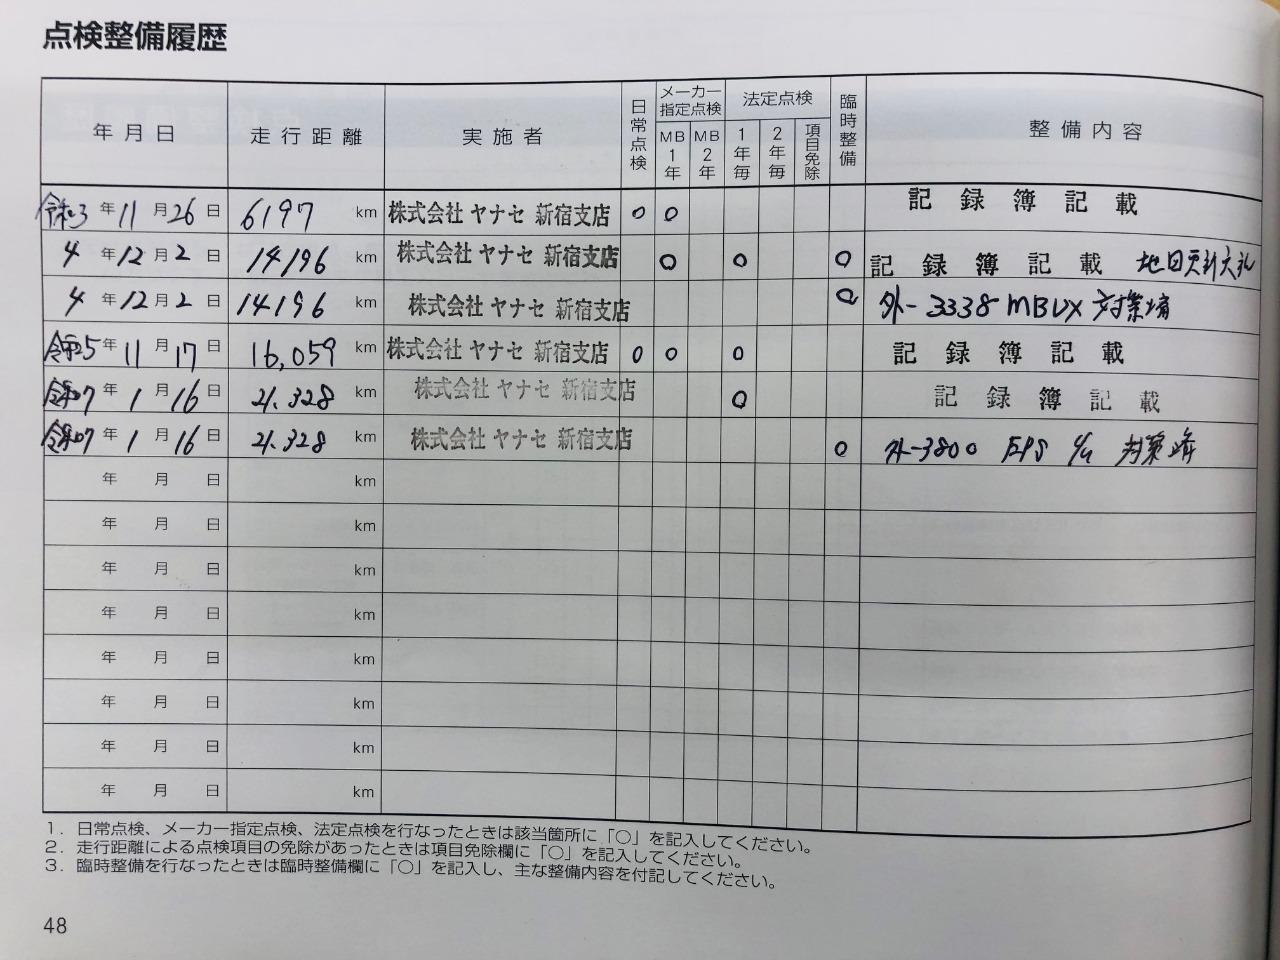 点検整備履歴
年月日 走行距離 実施者 日常点検 メーカー指定点検 MB1年 MB2年 法定点検 1年毎 2年毎 項目免除 臨時整備 整備内容
令和3年11月26日 6197 km 株式会社 ヤナセ 新宿支店 ○ ○ 記録簿記載
4年12月2日 14196 km 株式会社 ヤナセ 新宿支店 ○ ○ ○ 記録簿記載 地図更新
4年12月2日 14196 km 株式会社 ヤナセ 新宿支店 ○ 外-3338 MBUX 対策済
令和5年11月17日 16,059 km 株式会社 ヤナセ 新宿支店 ○ ○ ○ 記録簿記載
令和7年1月16日 21.328 km 株式会社 ヤナセ 新宿支店 ○ 記録簿記載
令和7年1月16日 21.328 km 株式会社 ヤナセ 新宿支店 ○ 外-3800 EPS 対策済
年 月 日 km
年 月 日 km
年 月 日 km
年 月 日 km
年 月 日 km
年 月 日 km
年 月 日 km
年 月 日 km
1. 日常点検、メーカー指定点検、法定点検を行なったときは該当箇所に「○」を記入してください。
2. 走行距離による点検項目の免除があったときは項目免除欄に「○」を記入してください。
3. 臨時整備を行なったときは臨時整備欄に「○」を記入し、主な整備内容を付記してください。
48